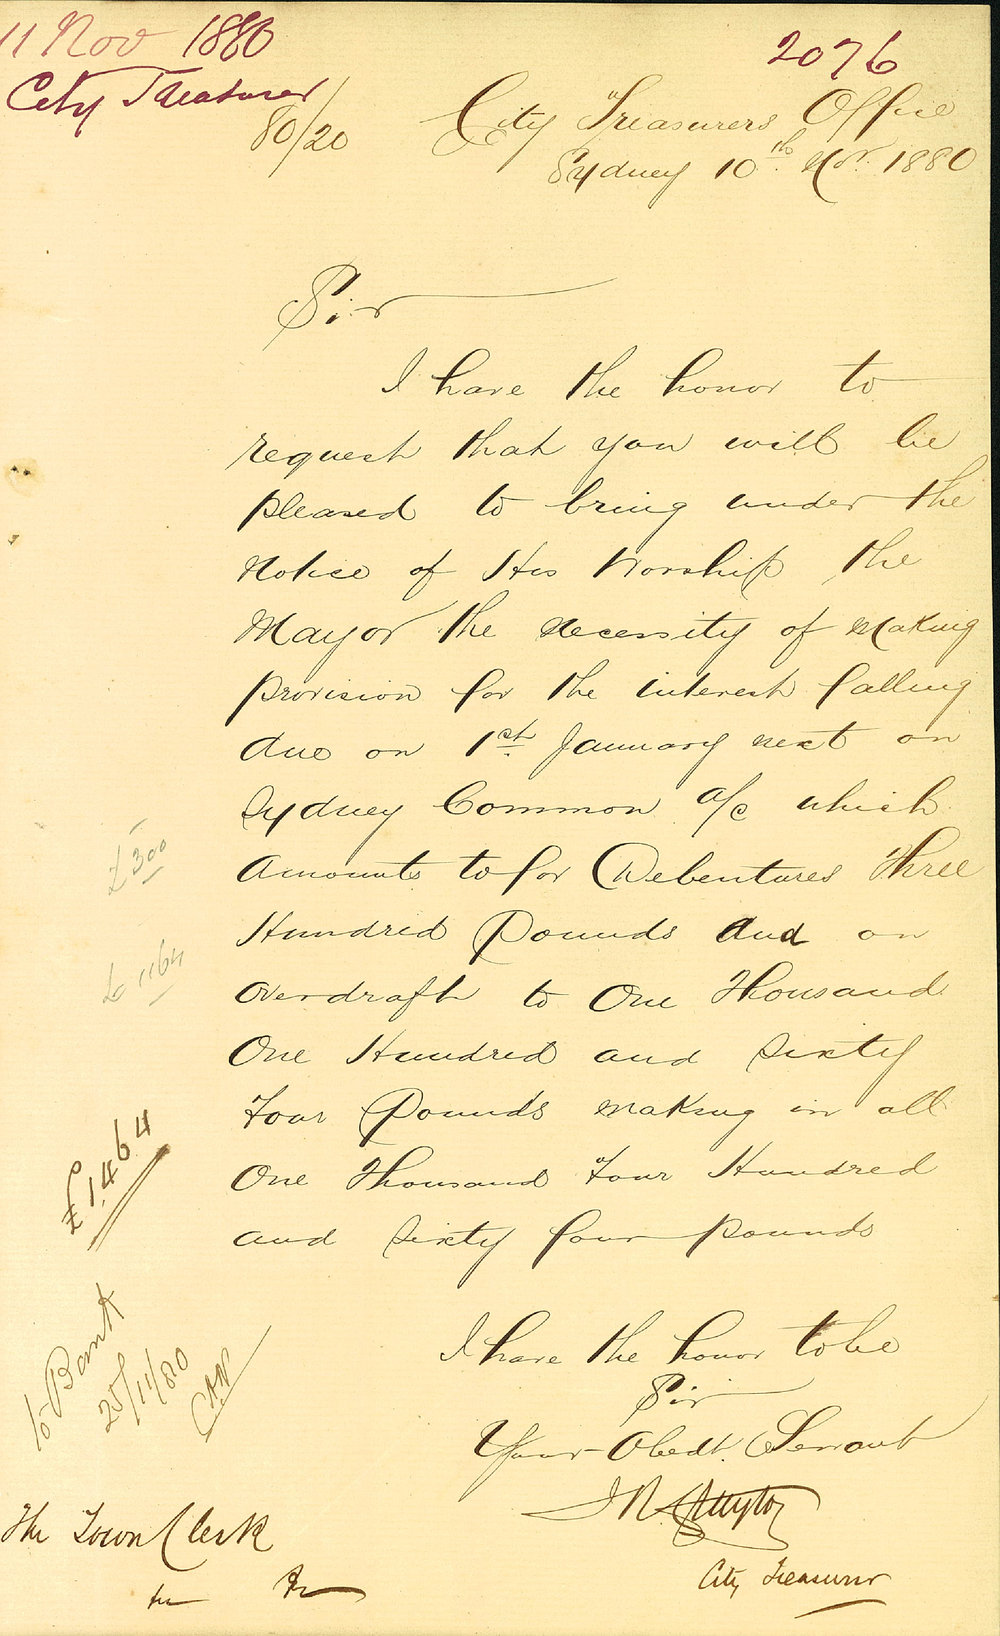 11 Nov 1880
City Treasurer
2076
80/20
City Treasurers Office
Sydney 10th Nov. 1880
Sir
I have the honor to
request that you will be
pleased to bring under the
Notice of His Worship the
Mayor the necessity of making
provision for the interest falling
due on 1st January next on
Sydney Common a/c which
amounts to for Debentures Three
Hundred Pounds and on
overdraft to One Thousand
One Hundred and Sixty
Four Pounds making in all
One Thousand Four Hundred
and Sixty four pounds
£300
£1164
£1,464
to Bank
25/11/80
I have the honor to be
Sir
Your Obedt. Servant
The Town Clerk
City Treasurer